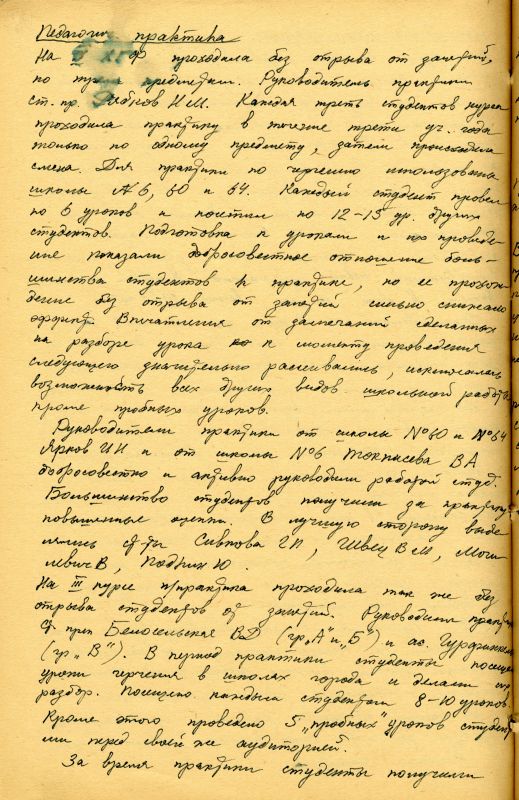 Педагогич практика
На проходила без отрыва от занятий,
по предметам. Руководитель практики
ст. пр. И.М. Каждая треть студентов курса
проходила практику в течение трети уч. года
только по одному предмету, затем происходила
смена. Для практики по черчению использованы
школы № 6, 60 и 64. Каждый студент провел
по 6 уроков и посетил по 12-15 ур. других
студентов. Подготовка к урокам и их проведе-
ние показали добросовестное отношение боль-
шинства студентов к практике, но ее прохож-
дение без отрыва от занятий сильно снижало
эффект. Впечатления от замечаний сделанных
на разборе урока к моменту проведения
следующего значительно рассеивались, исключалась
возможность всех других видов школьной работы
кроме пробных уроков.
Руководители практики от школы №60 и №64
Ярков И.И и от школы №6 В А
добросовестно и активно руководили работой студ.
Большинство студентов получили за практику
повышенные оценки. В лучшую сторону выде
лялись ст-ты Сивкова Г.П, Швец В М, Моги
левич В, Ю.
На III курсе п/практика проходила так же без
отрыва студентов от занятий. Руководили практик
ст преп Белосельская В.Д (гр „А" и „Б") и ас. Гурфинкель
(гр „В"). В период практики студенты посещ
уроки черчения в школах города и делали их
разбор. Посещено каждым студентом 8-10 уроков.
Кроме этого проведено 5 „пробных" уроков студен
ми перед своей же аудиторией.
За время практики студенты получили